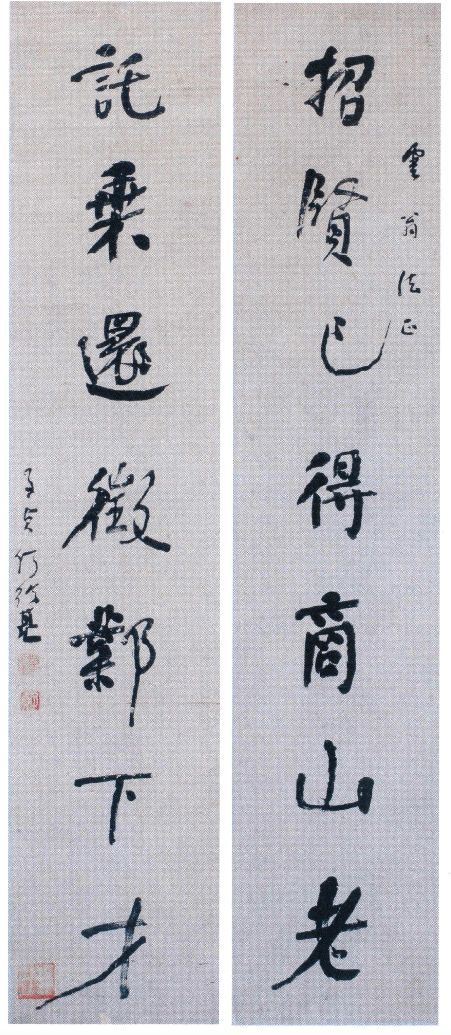 雲翁法正
招賢已得商山老
託乘還徵鄴下才
子貞何紹基